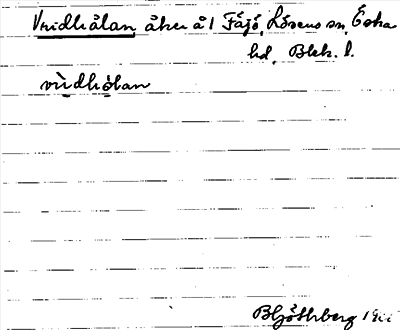 Vridhålan, åker å 1 Fäjö, Lösens sn, Östra
hd, Blek. l.
vridhólan
B Götlberg